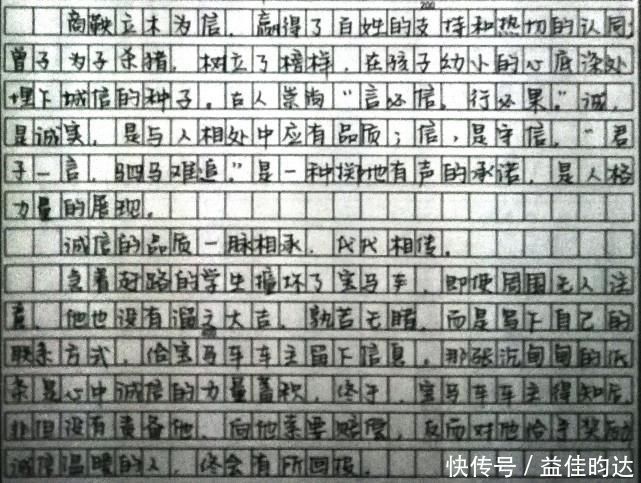 200
商鞅立木为信，赢得了百姓的支持和热切的认同；
曾子为子杀猪，树立了榜样，在孩子幼小的心底深处
埋下城信的种子。古人崇尚“言必信，行必果。”诚，
是诚实，是与人相处中应有品质；信，是守信，“君
子一言，驷马难追。”是一种掷地有声的承诺，是人格
力量的展现。
诚信的品质一脉相承，代代相传。
急着赶路的学生撞坏了宝马车，即便周围无人注
意，他也没有溜之大吉，孰若无睹，而是写下自己的
联系方式，给宝马车车主留下信息，那张沉甸甸的纸
条是心中诚信的力量蓄积，终于，宝马车车主得知后，
非但没有责备他，向他索要赔偿，反而对他给予奖励
诚信温暖的人，终会有所回报。
快传号／益佳昀达